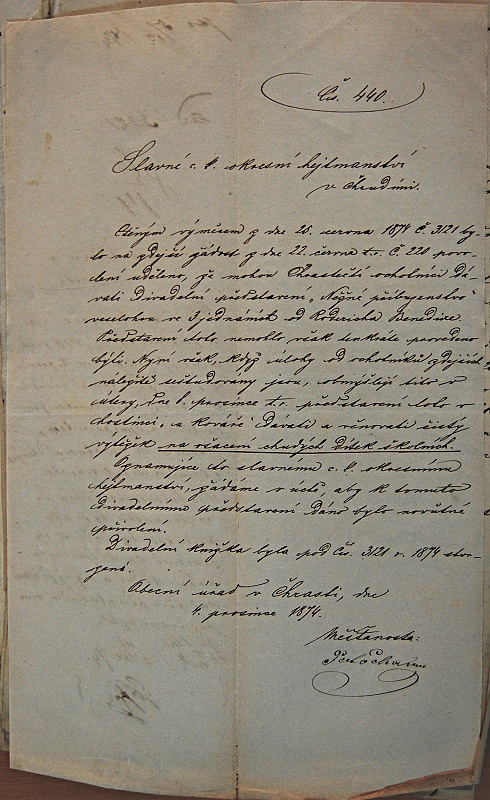 Čís. 440.
Slavné c. k. okresní hejtmanství
v Chrudimi.
Ctěným výměrem z dne 26. června 1874 Č. 3121 by-
lo na zdejší žádost z dne 22. června t. r. Č. 220 povo-
lení uděleno, že mohou Chrastečtí ochotníci dá-
vati divadelní představení „Něžné příbuzenstvo"
veselohou ve 3 jednáních od Rodericha Benedixe.
Představení toto nemohlo však tenkráte provedeno
býti. Nyní však, když úlohy od ochotníků zdejších
náležitě nastudovány jsou, obmýšlejí tito v
úterý, dne 8. prosince t. r. představení toto v
hostinci „u Kováře" dávati a věnovati čistý
výtěžek na ošacení chudých dítek školních.
Oznamujíce to slavnému c. k. okresnímu
hejtmanství, žádáme v úctě, aby k tomuto
divadelnímu představení dáno bylo novutné
přivolení.
Divadelní knížka byla pod Čís. 3121 r. 1874 stvr-
zena.
Obecní úřad v Chrasti, dne
4. prosince 1874.
Měšťanosta: